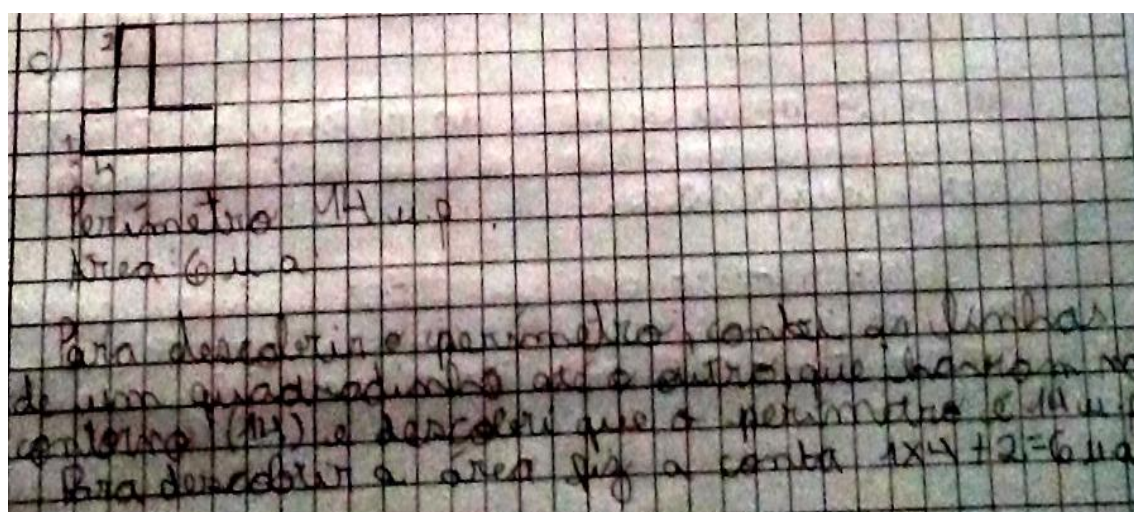 c) 2
1
4
Perímetro 14 u p.
Área 6 u a
Para descobrir o perímetro contei as linhas
de um quadradinho até o outro, que haviam no
contorno (14) e descobri que o perímetro é 14 u p
Para descobrir a área fiz a conta 1x4+2=6 ua